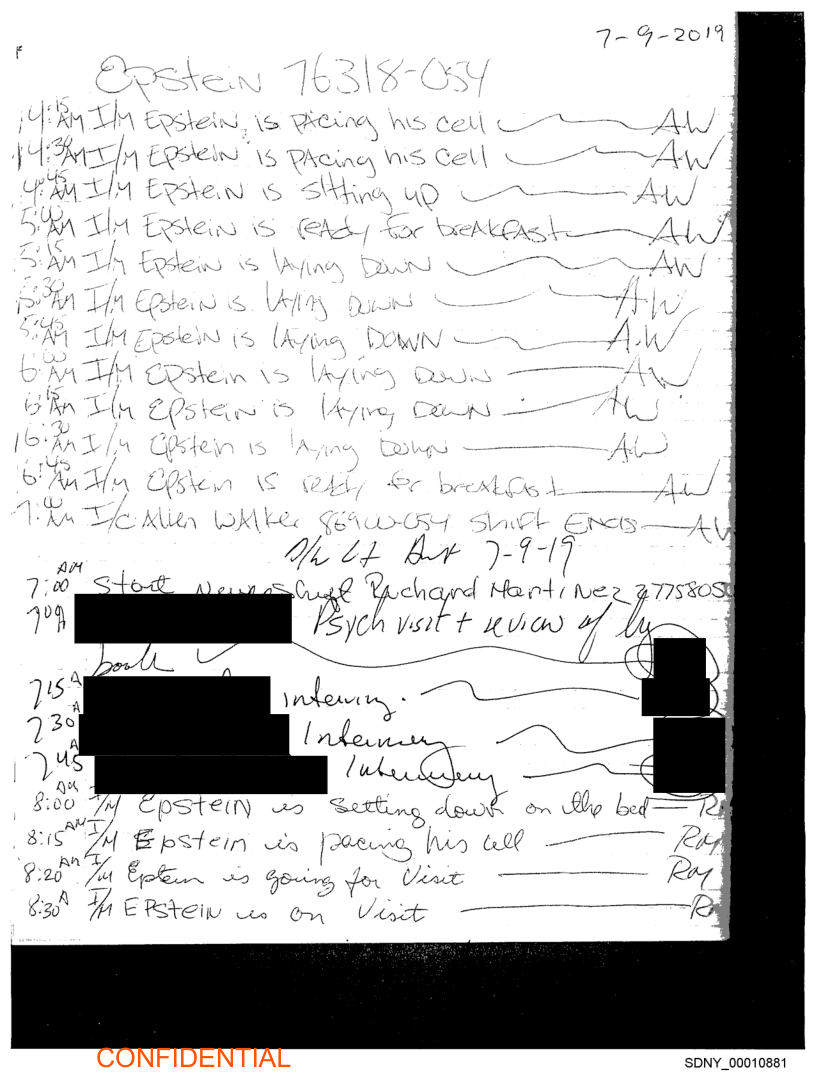 7-9-2019
Epstein 76318-054
4:15 AM I/M Epstein is pacing his cell AW
4:30 AM I/M Epstein is pacing his cell AW
4:45 AM I/M Epstein is sitting up AW
5:00 AM I/M Epstein is ready for breakfast AW
5:15 AM I/M Epstein is laying down AW
5:30 AM I/M Epstein is laying down AW
5:45 AM I/M Epstein is laying DOWN A.W
6:00 AM I/M Epstein is laying down AW
6:15 AM I/M Epstein is laying down AW
6:30 AM I/M Epstein is laying down AW
6:45 AM I/M Epstein is ready for breakfast AW
7:00 AM I/C Allen Walker 86900-054 Shift Ends AW
7-9-19
7:00 AM Start New Richard Martinez
7 00 A Psych visit + review of
book
7 15 A
7 30 A
7 45 A
8:00 AM I/M Epstein is setting down on the bed
8:15 AM I/M Epstein is pacing his cell
8:20 AM I/M Eptein is going for Visit
8:30 A I/M EPStEiN is on Visit
CONFIDENTIAL
SDNY_00010881